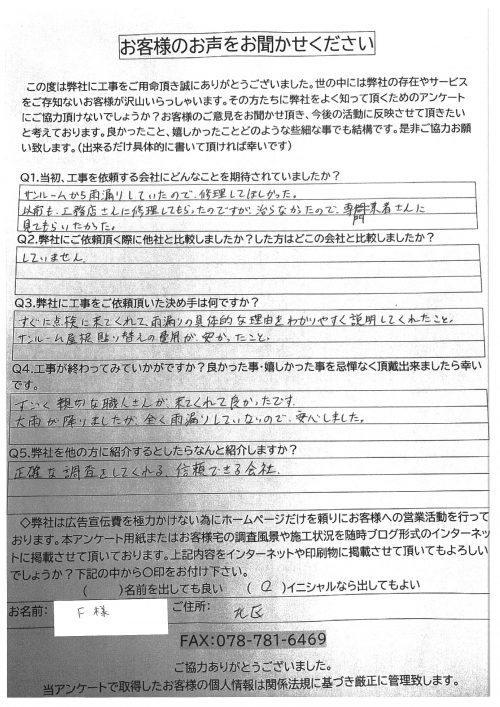 お客様のお声をお聞かせください
この度は弊社に工事をご用命頂き誠にありがとうございました。世の中には弊社の存在やサービス
をご存知ないお客様が沢山いらっしゃいます。その方たちに弊社をよく知って頂くためのアンケート
にご協力頂けないでしょうか？お客様のご意見をお聞かせ頂き、今後の活動に反映させて頂きたい
と考えております。良かったこと、嬉しかったことどのような些細な事でも結構です。是非ご協力お願
い致します。（出来るだけ具体的に書いて頂ければ幸いです）
Q1.当初、工事を依頼する会社にどんなことを期待されていましたか？
サンルームから雨漏りしていたので、修理してほしかった。
以前も、工務店さんに修理してもらったのですが、治らなかったので、専門業者さんに
見てもらいたかった。
Q2.弊社にご依頼頂く際に他社と比較しましたか？した方はどこの会社と比較しましたか？
していません。
Q3.弊社に工事をご依頼頂いた決め手は何ですか？
すぐに点検に来てくれて、雨漏りの具体的な理由をわかりやすく説明してくれたこと。
サンルーム屋根貼り替えの費用が安かったこと。
Q4.工事が終わってみていかがですか？良かった事・嬉しかった事を忌憚なく頂戴出来ましたら幸い
です。
すごく親切な職人さんが来てくれて良かったです。
大雨が降りましたが、全く雨漏りしていないので、安心しました。
Q5.弊社を他の方に紹介するとしたらなんと紹介しますか？
正確な調査をしてくれる、信頼できる会社。
◇弊社は広告宣伝費を極力かけない為にホームページだけを頼りにお客様への営業活動を行って
おります。本アンケート用紙またはお客様宅の調査風景や施工状況を随時ブログ形式のインターネッ
トに掲載させて頂いております。上記内容をインターネットや印刷物に掲載させて頂いてもよろしい
でしょうか？下記の中から〇印をお付け下さい。
（　　）名前を出しても良い　（ ○ ）イニシャルなら出してもよい
お名前：　F 様　ご住所：　北区
FAX：078-781-6469
ご協力ありがとうございました。
当アンケートで取得したお客様の個人情報は関係法規に基づき厳正に管理致します。